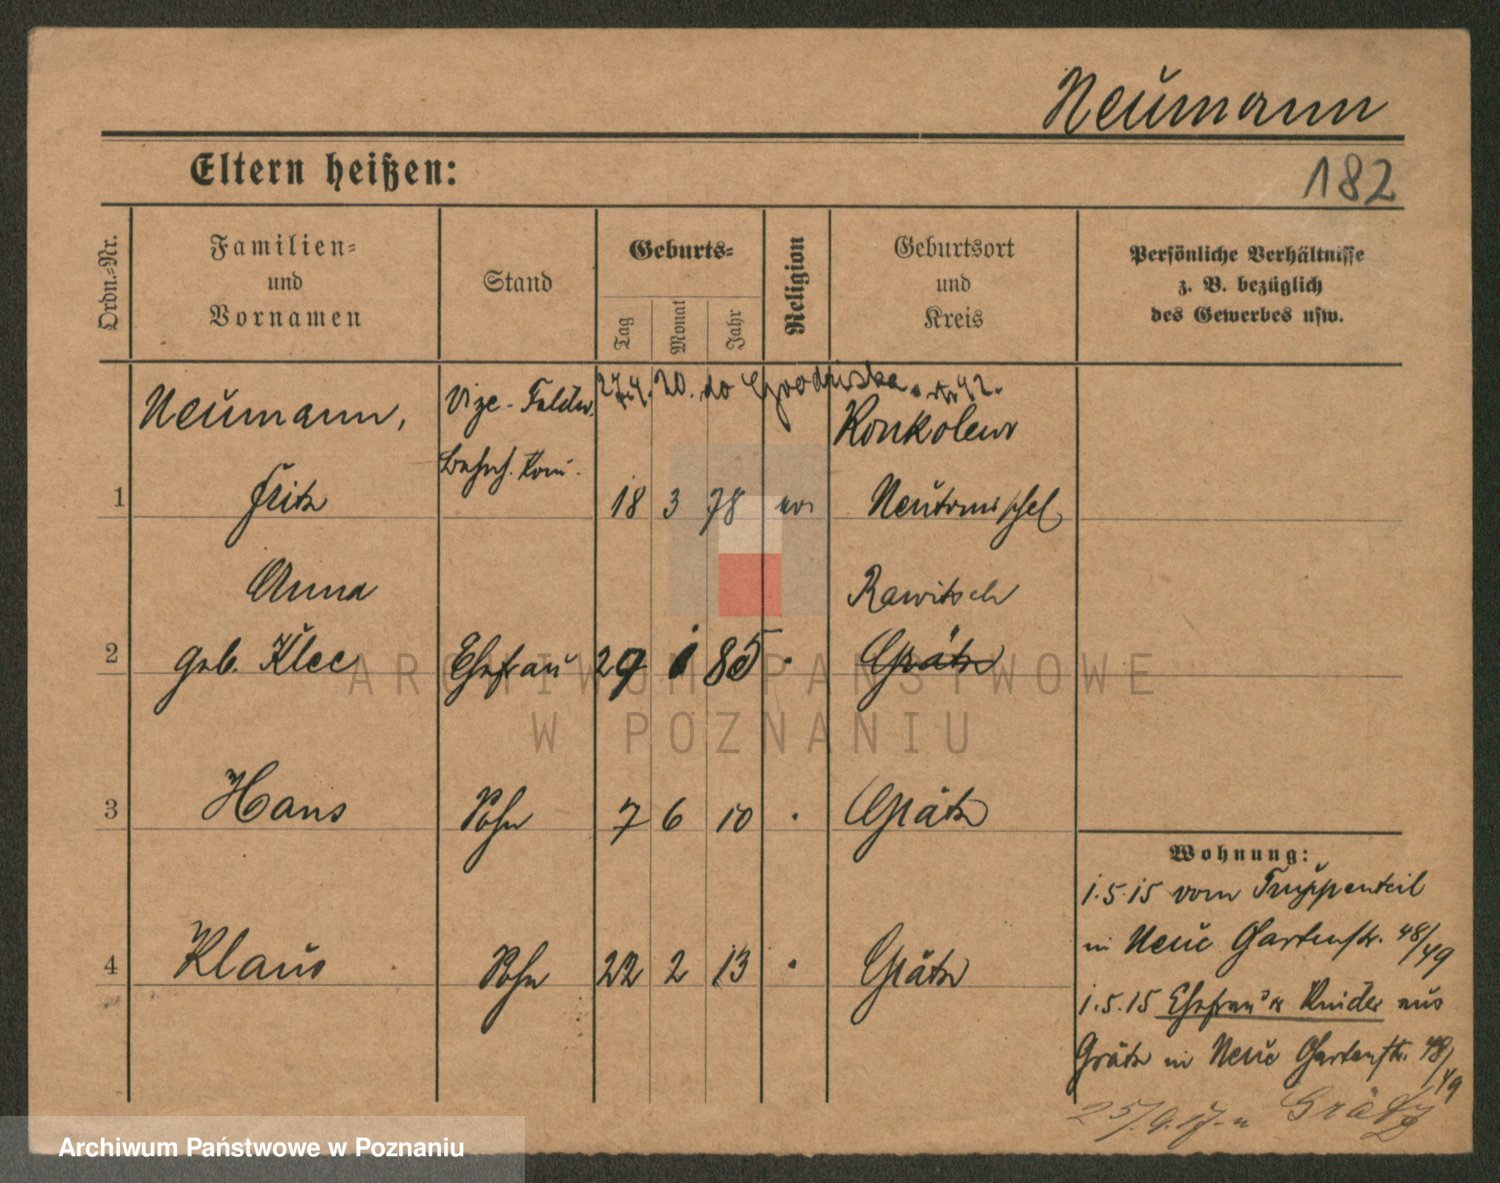 Neumann
Eltern heißen:
182
Ordn.-Nr.
Familien-
und
Vornamen
Stand
Geburts-
Tag
Monat
Jahr
Religion
Geburtsort
und
Kreis
Persönliche Verhältnisse
z. B. bezüglich
des Gewerbes usw.
Neumann, Vize-Feldw. Konkolewo
1 Fritz 18 3 78 Neutomischel
Anna Rawitsch
2 geb. Klee Ehefrau 29 85 Grätz
3 Hans Sohn 7 6 10 Grätz
4 Klaus Sohn 22 2 13 Grätz
Wohnung:
1.5.15 vom Truppenteil
in Neue Gartenstr. 48/49
1.5.15 Ehefrau u Kinder aus
Grätz in Neue Gartenstr. 48/49
Grätz
ARCHIWUM PAŃSTWOWE
W POZNANIU
Archiwum Państwowe w Poznaniu